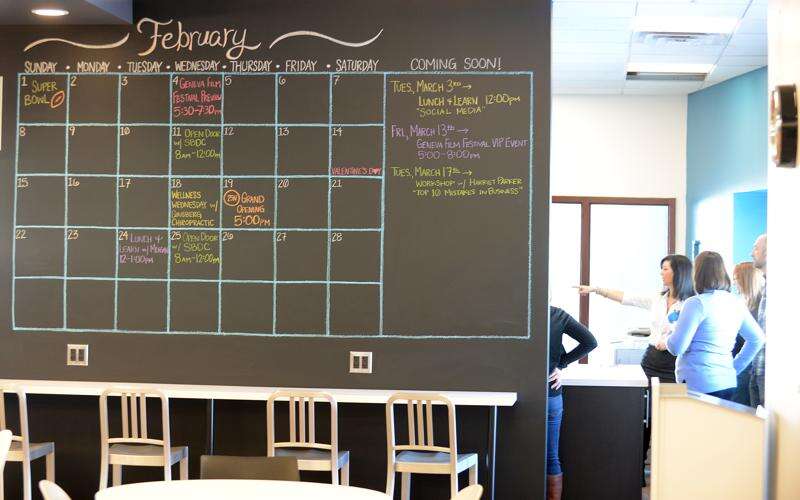 February
SUNDAY • MONDAY • TUESDAY • WEDNESDAY • THURSDAY • FRIDAY • SATURDAY
1 2 3 4 5 6 7
SUPER
BOWL
GENEVA FILM
FESTIVAL PREVIEW
5:30-7:30pm
8 9 10 11 12 13 14
OPEN DOOR
w/ SBDC
8am-12:00pm
VALENTINE'S DAY
15 16 17 18 19 20 21
WELLNESS
WEDNESDAY w/
GINSBERG
CHIROPRACTIC
GRAND
OPENING
5:00pm
22 23 24 25 26 27 28
LUNCH &
LEARN w/
12-1:00pm
OPEN DOOR
w/ SBDC
8am-12:00pm
COMING SOON!
TUES, MARCH 3RD →
LUNCH & LEARN 12:00pm
"SOCIAL MEDIA"
FRI, MARCH 13TH →
GENEVA FILM FESTIVAL VIP EVENT
5:00-8:00pm
TUES, MARCH 17TH →
WORKSHOP w/ HARRIET PARKER
"TOP 10 MISTAKES IN BUSINESS"